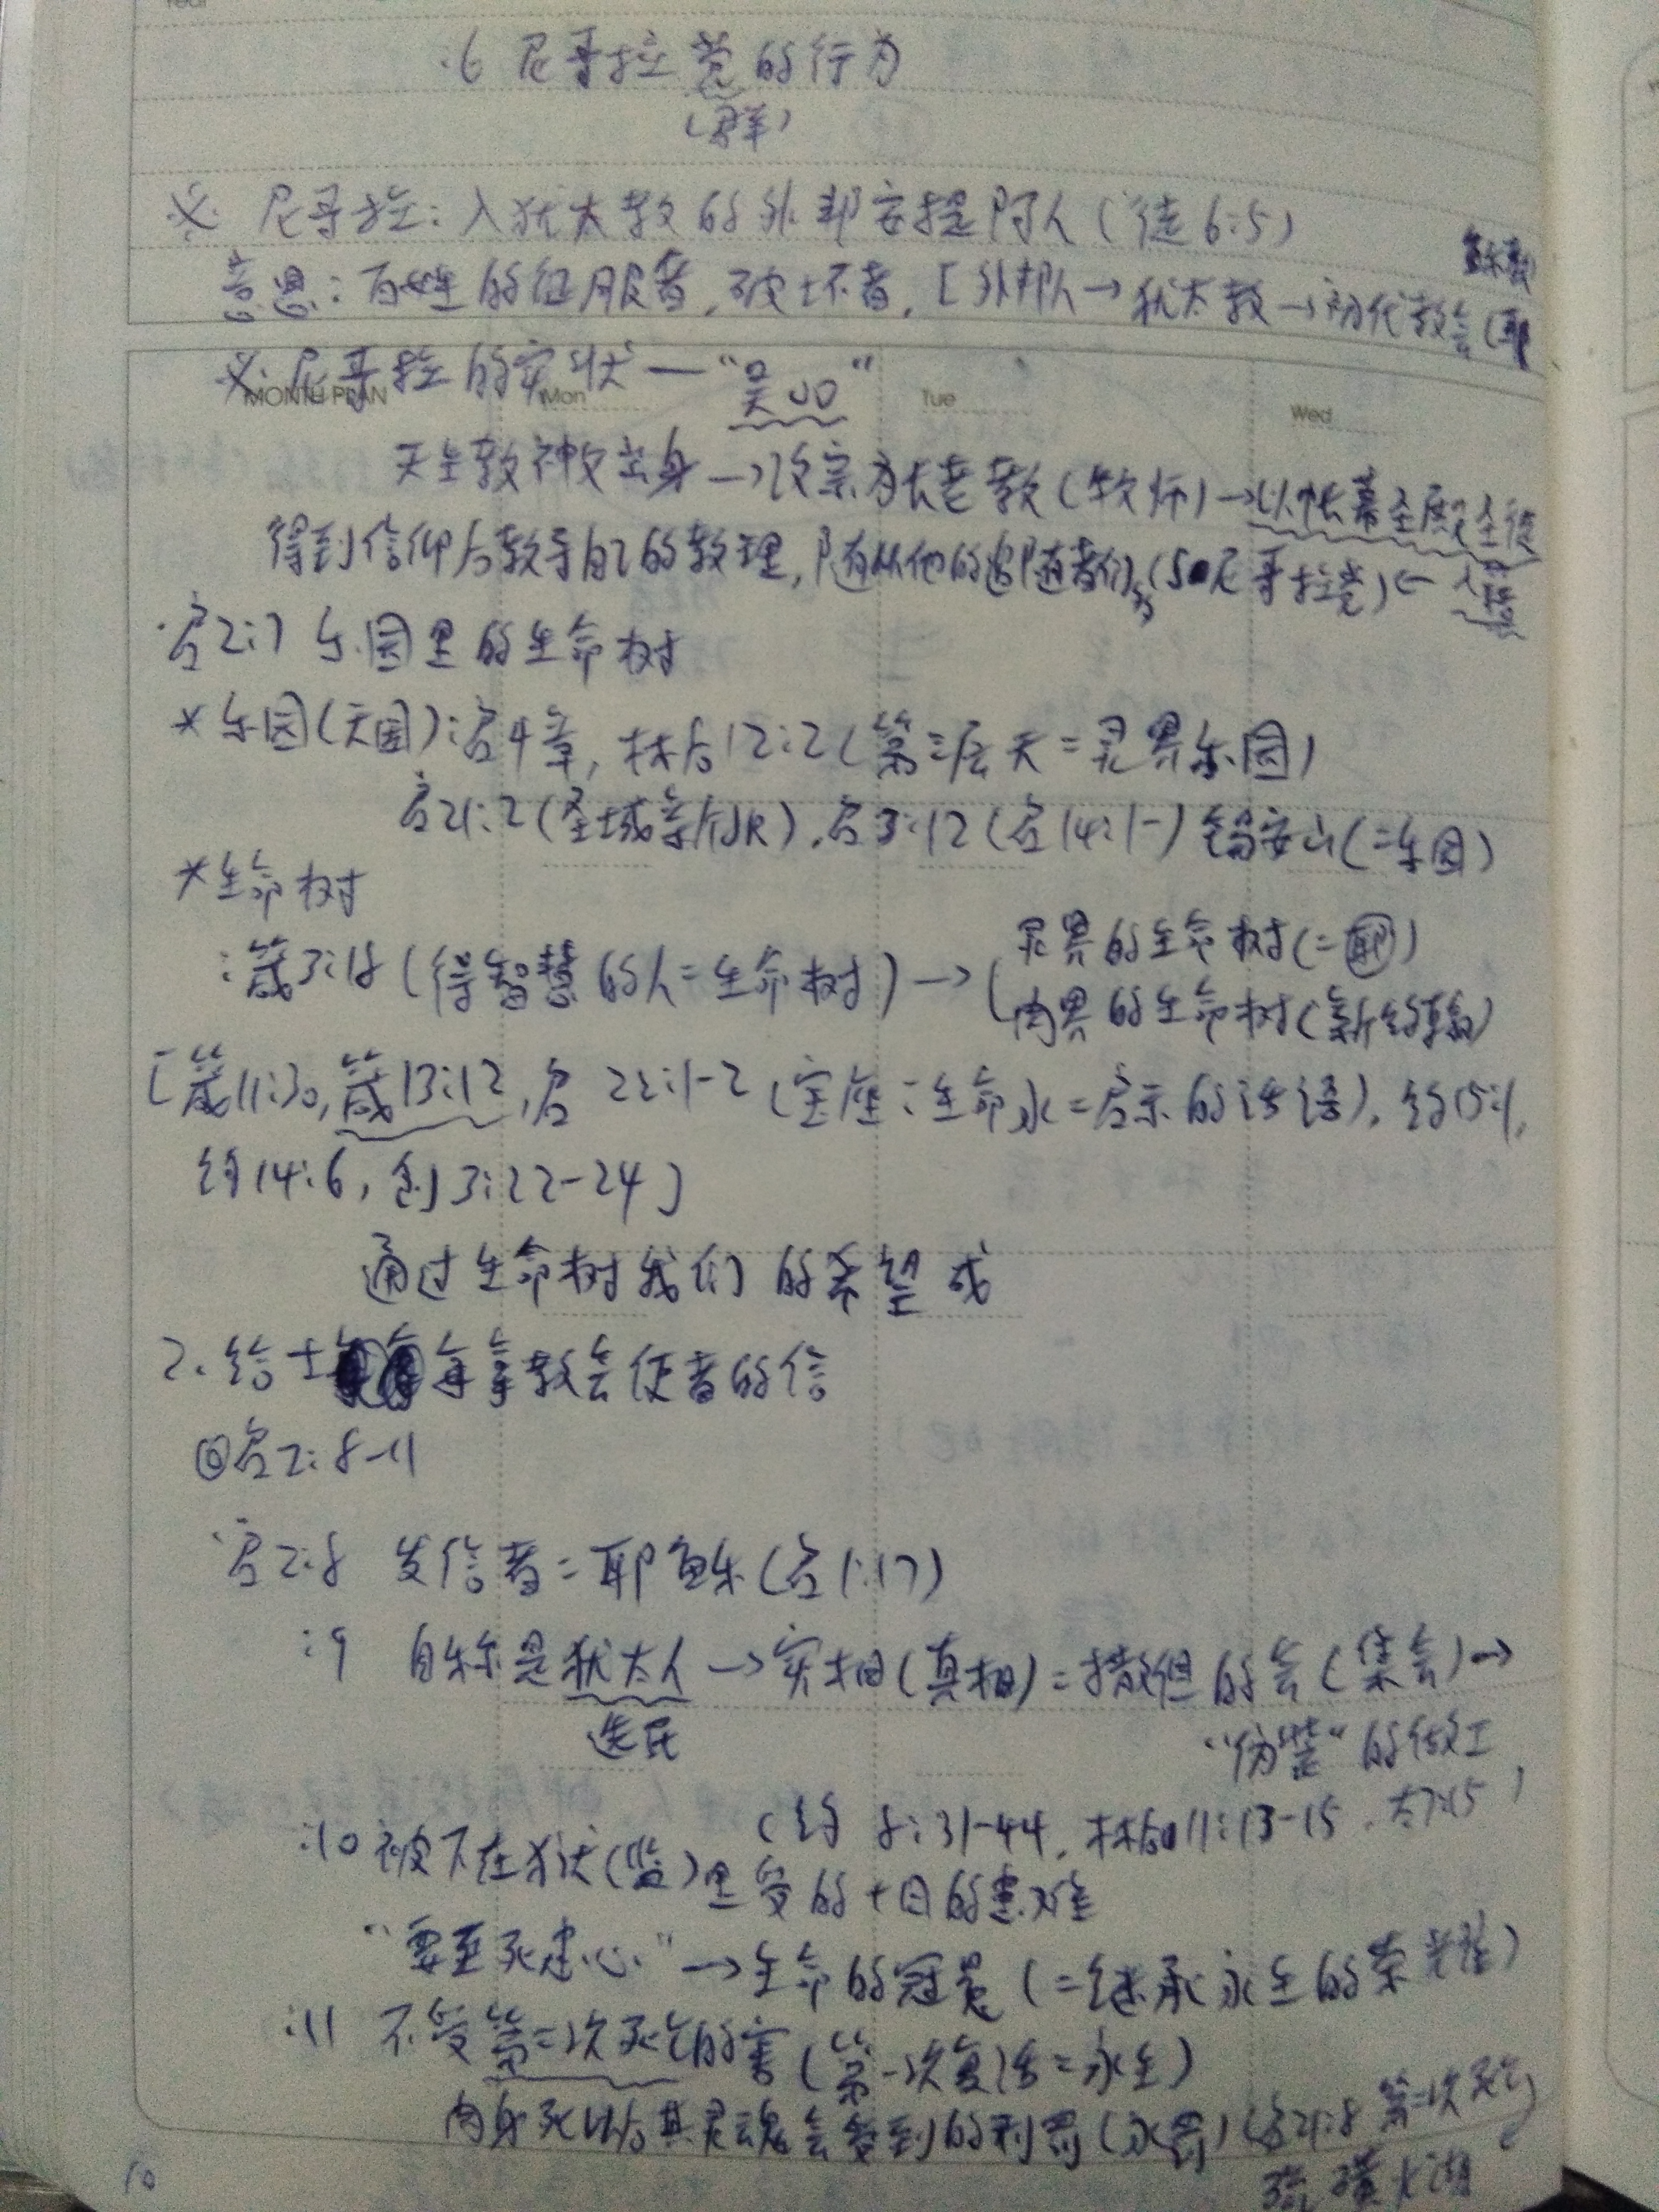 :6 尼哥拉党的行为
(群)
※ 尼哥拉:入犹太教的外邦安提阿人(徒6:5)
意思:百姓的征服者,破坏者,[外邦人→犹太教→初代教会(耶
稣教)
※ 尼哥拉的实状—“吴○○”
MONTH PLAN Mon Tue Wed
天主教神父出身→改宗为长老教(牧师)→以帐幕圣殿圣徒
得到信仰后教导自己的教理,随从他的追随者们(50尼哥拉党)← 入程
启2:7 乐园里的生命树
*乐园(天国):启4章,林后12:2(第三层天=灵界乐园)
启21:2(圣城新JR),启3:12(启14:1-)锡安山(=乐园)
*生命树
:箴3:18(得智慧的人=生命树)→(灵界的生命树(=耶)
肉界的生命树(新约)
[箴11:30,箴13:12,启22:1-2(宝座:生命水=启示的话语),约15:1,
约14:6,创3:22-24]
通过生命树我们的希望成
2.给士每拿教会使者的信
回启2:8-11
启2:8 发信者=耶稣(启1:17)
:9 自称是犹太人→实相(真相)=撒但的会(集会)→
选民
“伪装”的做工
(约8:31-44,林后11:13-15,太7:15)
:10 被下在狱(监)里受的十日的患难
“要至死忠心”→生命的冠冕(=继承永生的荣光)
:11 不受第二次死亡的害(第一次复活=永生)
肉身死以后其灵魂会受到的刑罚(永罚)(启21:8 第二次死亡
硫磺火湖
10